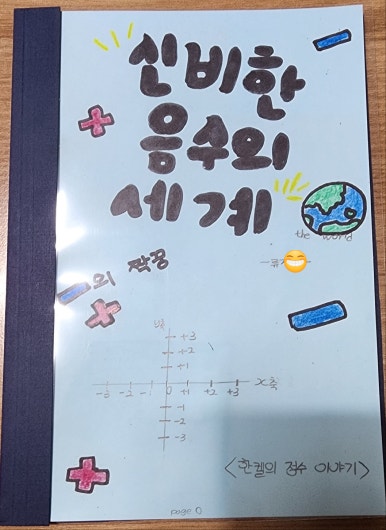 신비한
음수의
세계
the world
의 짝꿍
y축
+3
+2
+1
-3 -2 -1 0 +1 +2 +3 x축
-1
-2
-3
<한켈의 정수 이야기>
page 0